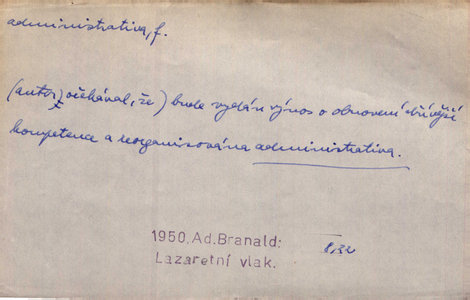 administrativa, f.
(autor očekával, že) bude vydán výnos o obnovení dřívější
kompetence a reorganisována administrativa.
1950, Ad. Branald:
Lazaretní vlak.
8,32